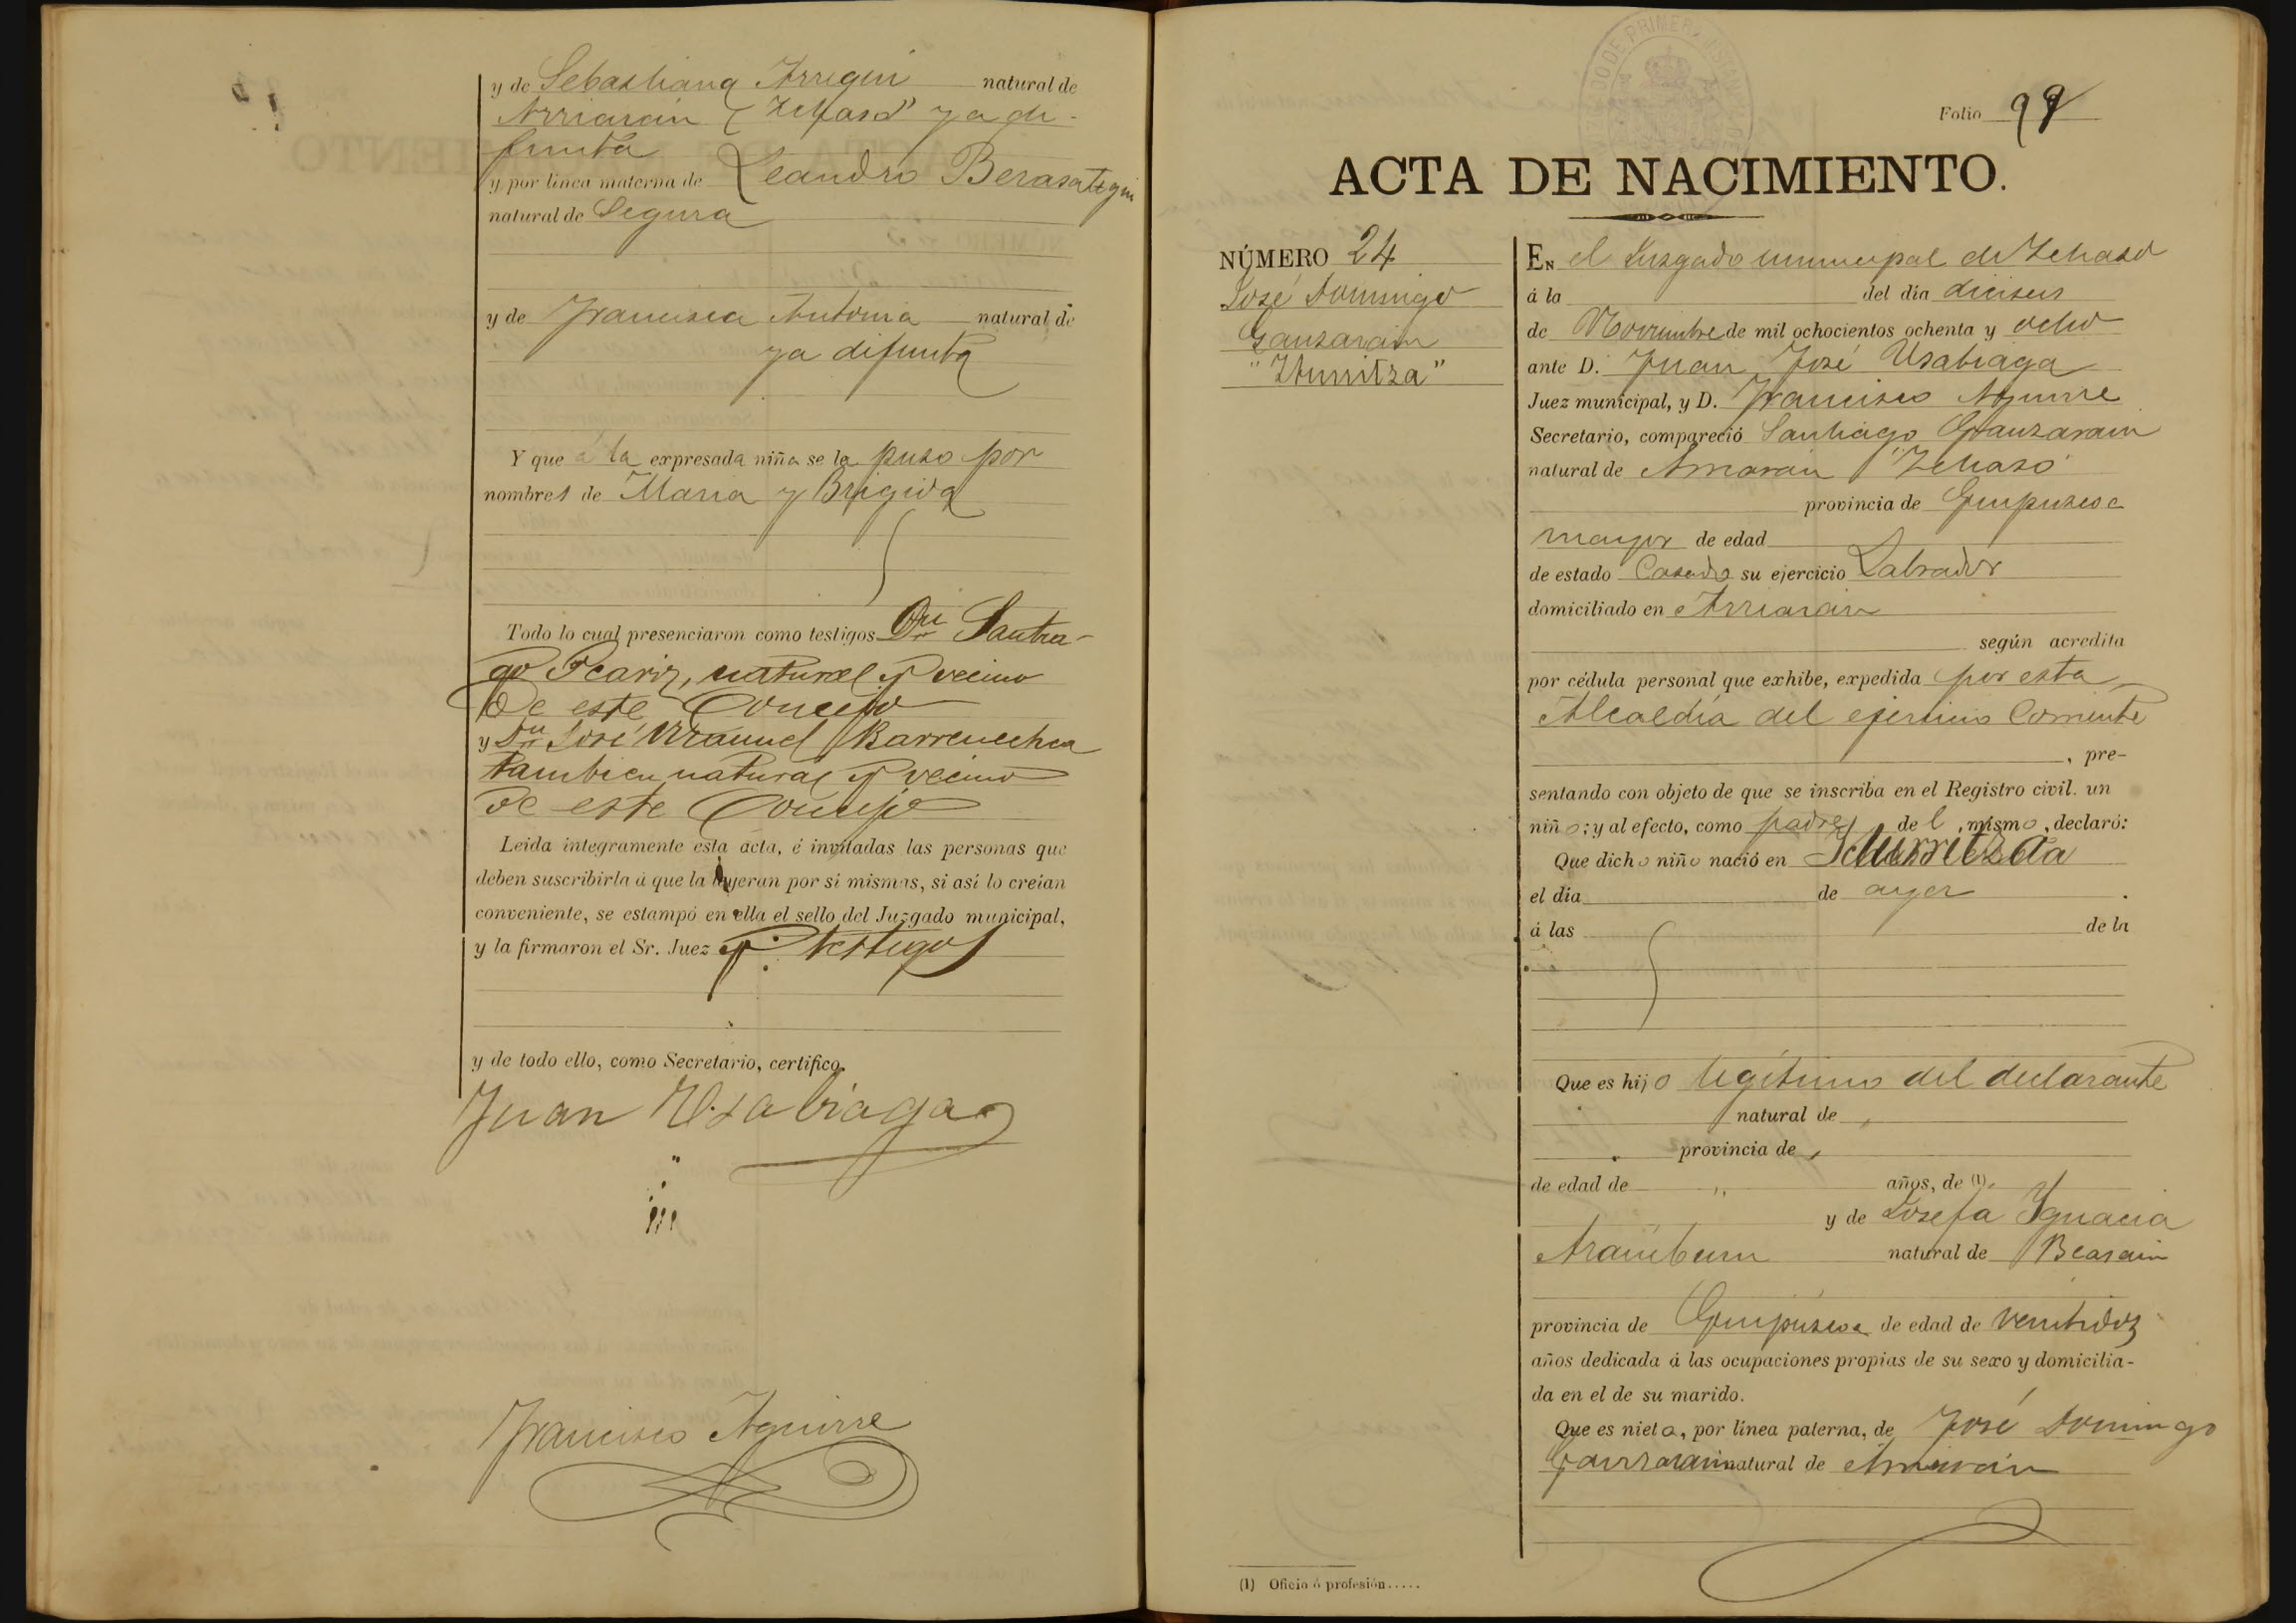 y de Sebastiana Arregui natural de
Arriarán (Ichaso) ya di-
funta
y por línea materna de Leandro Berasategui
natural de Segura
y de Francisca Antonia natural de
ya difunta
Y que á la expresada niña se la puso por
nombres de Maria y Brigida
Todo lo cual presenciaron como testigos Dn Santia-
go Ycariz, natural y vecino
de este Concejo
y Dn José Manuel Barrenechea
tambien natural y vecino
de este Concejo
Leida integramente esta acta, é invitadas las personas que
deben suscribirla á que la leyeran por sí mismas, si así lo creían
conveniente, se estampó en ella el sello del Juzgado municipal,
y la firmaron el Sr. Juez y testigos
y de todo ello, como Secretario, certifico.
Juan Usabiaga
Francisco Aguirre
Folio 99
ACTA DE NACIMIENTO.
NÚMERO 24
José Domingo
Ganzarain
EN el Juzgado municipal de Ichaso
á la del día dieciseis
de Noviembre de mil ochocientos ochenta y ocho
ante D. Juan José Usabiaga
Juez municipal, y D. Francisco Aguirre
Secretario, compareció Santiago Ganzarain
natural de Arriarán "Ichaso"
provincia de Guipuzcoa
mayor de edad
de estado Casado su ejercicio Labrador
domiciliado en Arriarán
según acredita
por cédula personal que exhibe, expedida por esta
Alcaldía del ejercicio Corriente
, pre-
sentando con objeto de que se inscriba en el Registro civil. un
niño; y al efecto, como padre del mismo, declaró:
Que dicho niño nació en
el día de ayer.
á las de la
Que es hijo legítimo del declarante
natural de
provincia de
de edad de " años, de (1).
y de Josefa Ygnacia
Aramburu natural de Beasain
provincia de Guipúzcoa de edad de ventidoz
años dedicada á las ocupaciones propias de su sexo y domicilia-
da en el de su marido.
Que es nieto, por línea paterna, de José Domingo
Ganzarain natural de Arriarán
(1) Oficio ó profesión.....